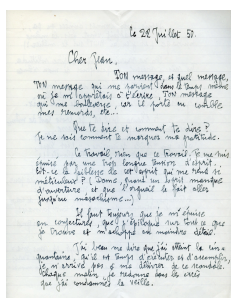 Le 22 Juillet 50.
Cher Jean,
TON message, et quel message,
TON message qui me parvient dans le temps même
où je m'apprêtais à t'écrire. TON message
qui me bouleverse, car il porte au comble
mes remords, etc...
Que te dire et comment te dire ?
Je ne sais comment te marquer ma gratitude.
Ce travail, rien que ce travail. Tu me dis
épuisé par une trop longue tension d'esprit.
Est-ce la faiblesse de cet esprit qui me rend si
méticuleux ? (Dame, quand un esprit manque
d'ouverture et que l'orgueil le fait aller
jusqu'au masochisme...)
Il faut toujours que je m'épuise
en conjectures, que j'épilogue sur tout ce que
je trouve et m'achoppe au moindre détail.
J'ai beau me dire que j'ai atteint la cin-
quantaine, qu'il est temps d'exécuter et d'assembler,
je n'arrive pas à me délivrer de ce scandale.
Chaque matin je retombe dans les excès
que j'ai condamnés la veille.